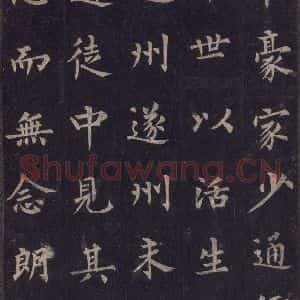 豪家少通
世以活生
州遂州未
徒中見其
而無念朗
Shufawang.CN